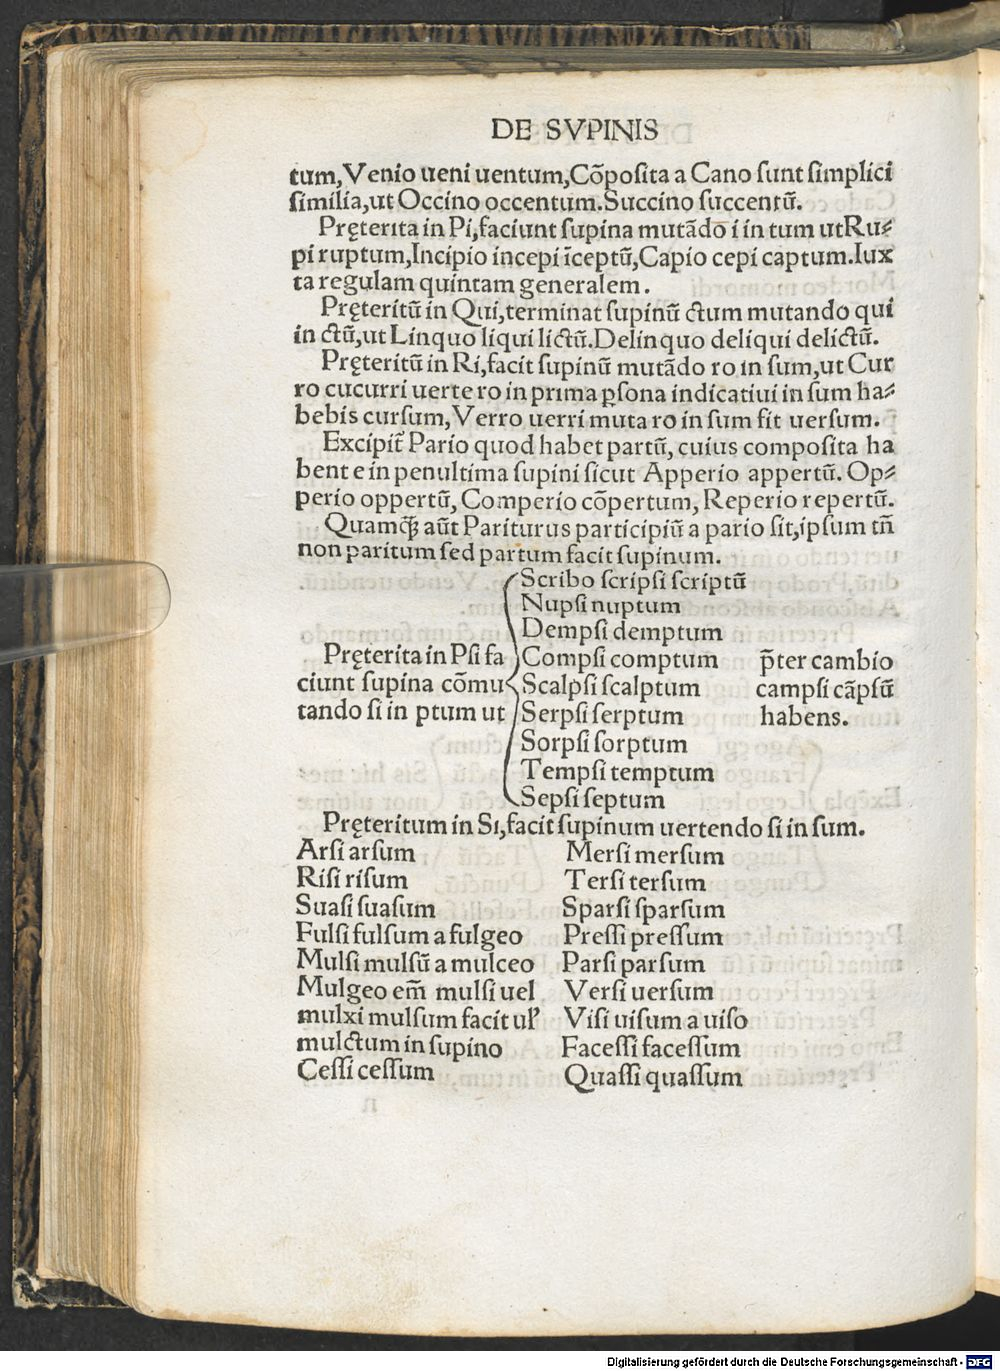 DE SVPINIS
tum,Venio ueni uentum,Cōposita a Cano sunt simplici
similia,ut Occino occentum.Succino succentū.
Pręterita in Pi,faciunt supina mutādo i in tum ut Ru⸗
pi ruptum,Incipio incepi īceptū,Capio cepi captum.Iux
ta regulam quintam generalem.
Pręteritū in Qui,terminat supinū ctum mutando qui
in ctū,ut Linquo liqui lictū.Delinquo deliqui delictū.
Pręteritū in Ri,facit supinū mutādo ro in sum,ut Cur
ro cucurri uerte ro in prima ꝑsona indicatiui in sum ha⸗
bebis cursum,Verro uerri muta ro in sum fit uersum.
Excipit̄ Pario quod habet partū, cuius composita ha
bent e in penultima supini sicut Apperio appertū. Op⸗
perio oppertū, Comperio cōpertum, Reperio repertū.
Quamꝙ aūt Pariturus participiū a pario sit,ipsum tn̄
non paritum sed partum facit supinum.
Scribo scripsi scriptū
Nupsi nuptum
Dempsi demptum
Pręterita in Psi fa Compsi comptum p̄ter cambio
ciunt supina cōmu Scalpsi scalptum campsi cāpsū
tando si in ptum ut Serpsi serptum habens.
Sorpsi sorptum
Tempsi temptum
Sepsi septum
Pręteritum in Si,facit supinum uertendo si in sum.
Arsi arsum Mersi mersum
Risi risum Tersi tersum
Suasi suasum Sparsi sparsum
Fulsi fulsum a fulgeo Pressi pressum
Mulsi mulsū a mulceo Parsi parsum
Mulgeo em̄ mulsi uel Versi uersum
mulxi mulsum facit ul' Visi uisum a uiso
mulctum in supino Facessi facessum
Cessi cessum Quassi quassum
Digitalisierung gefördert durch die Deutsche Forschungsgemeinschaft - DFG